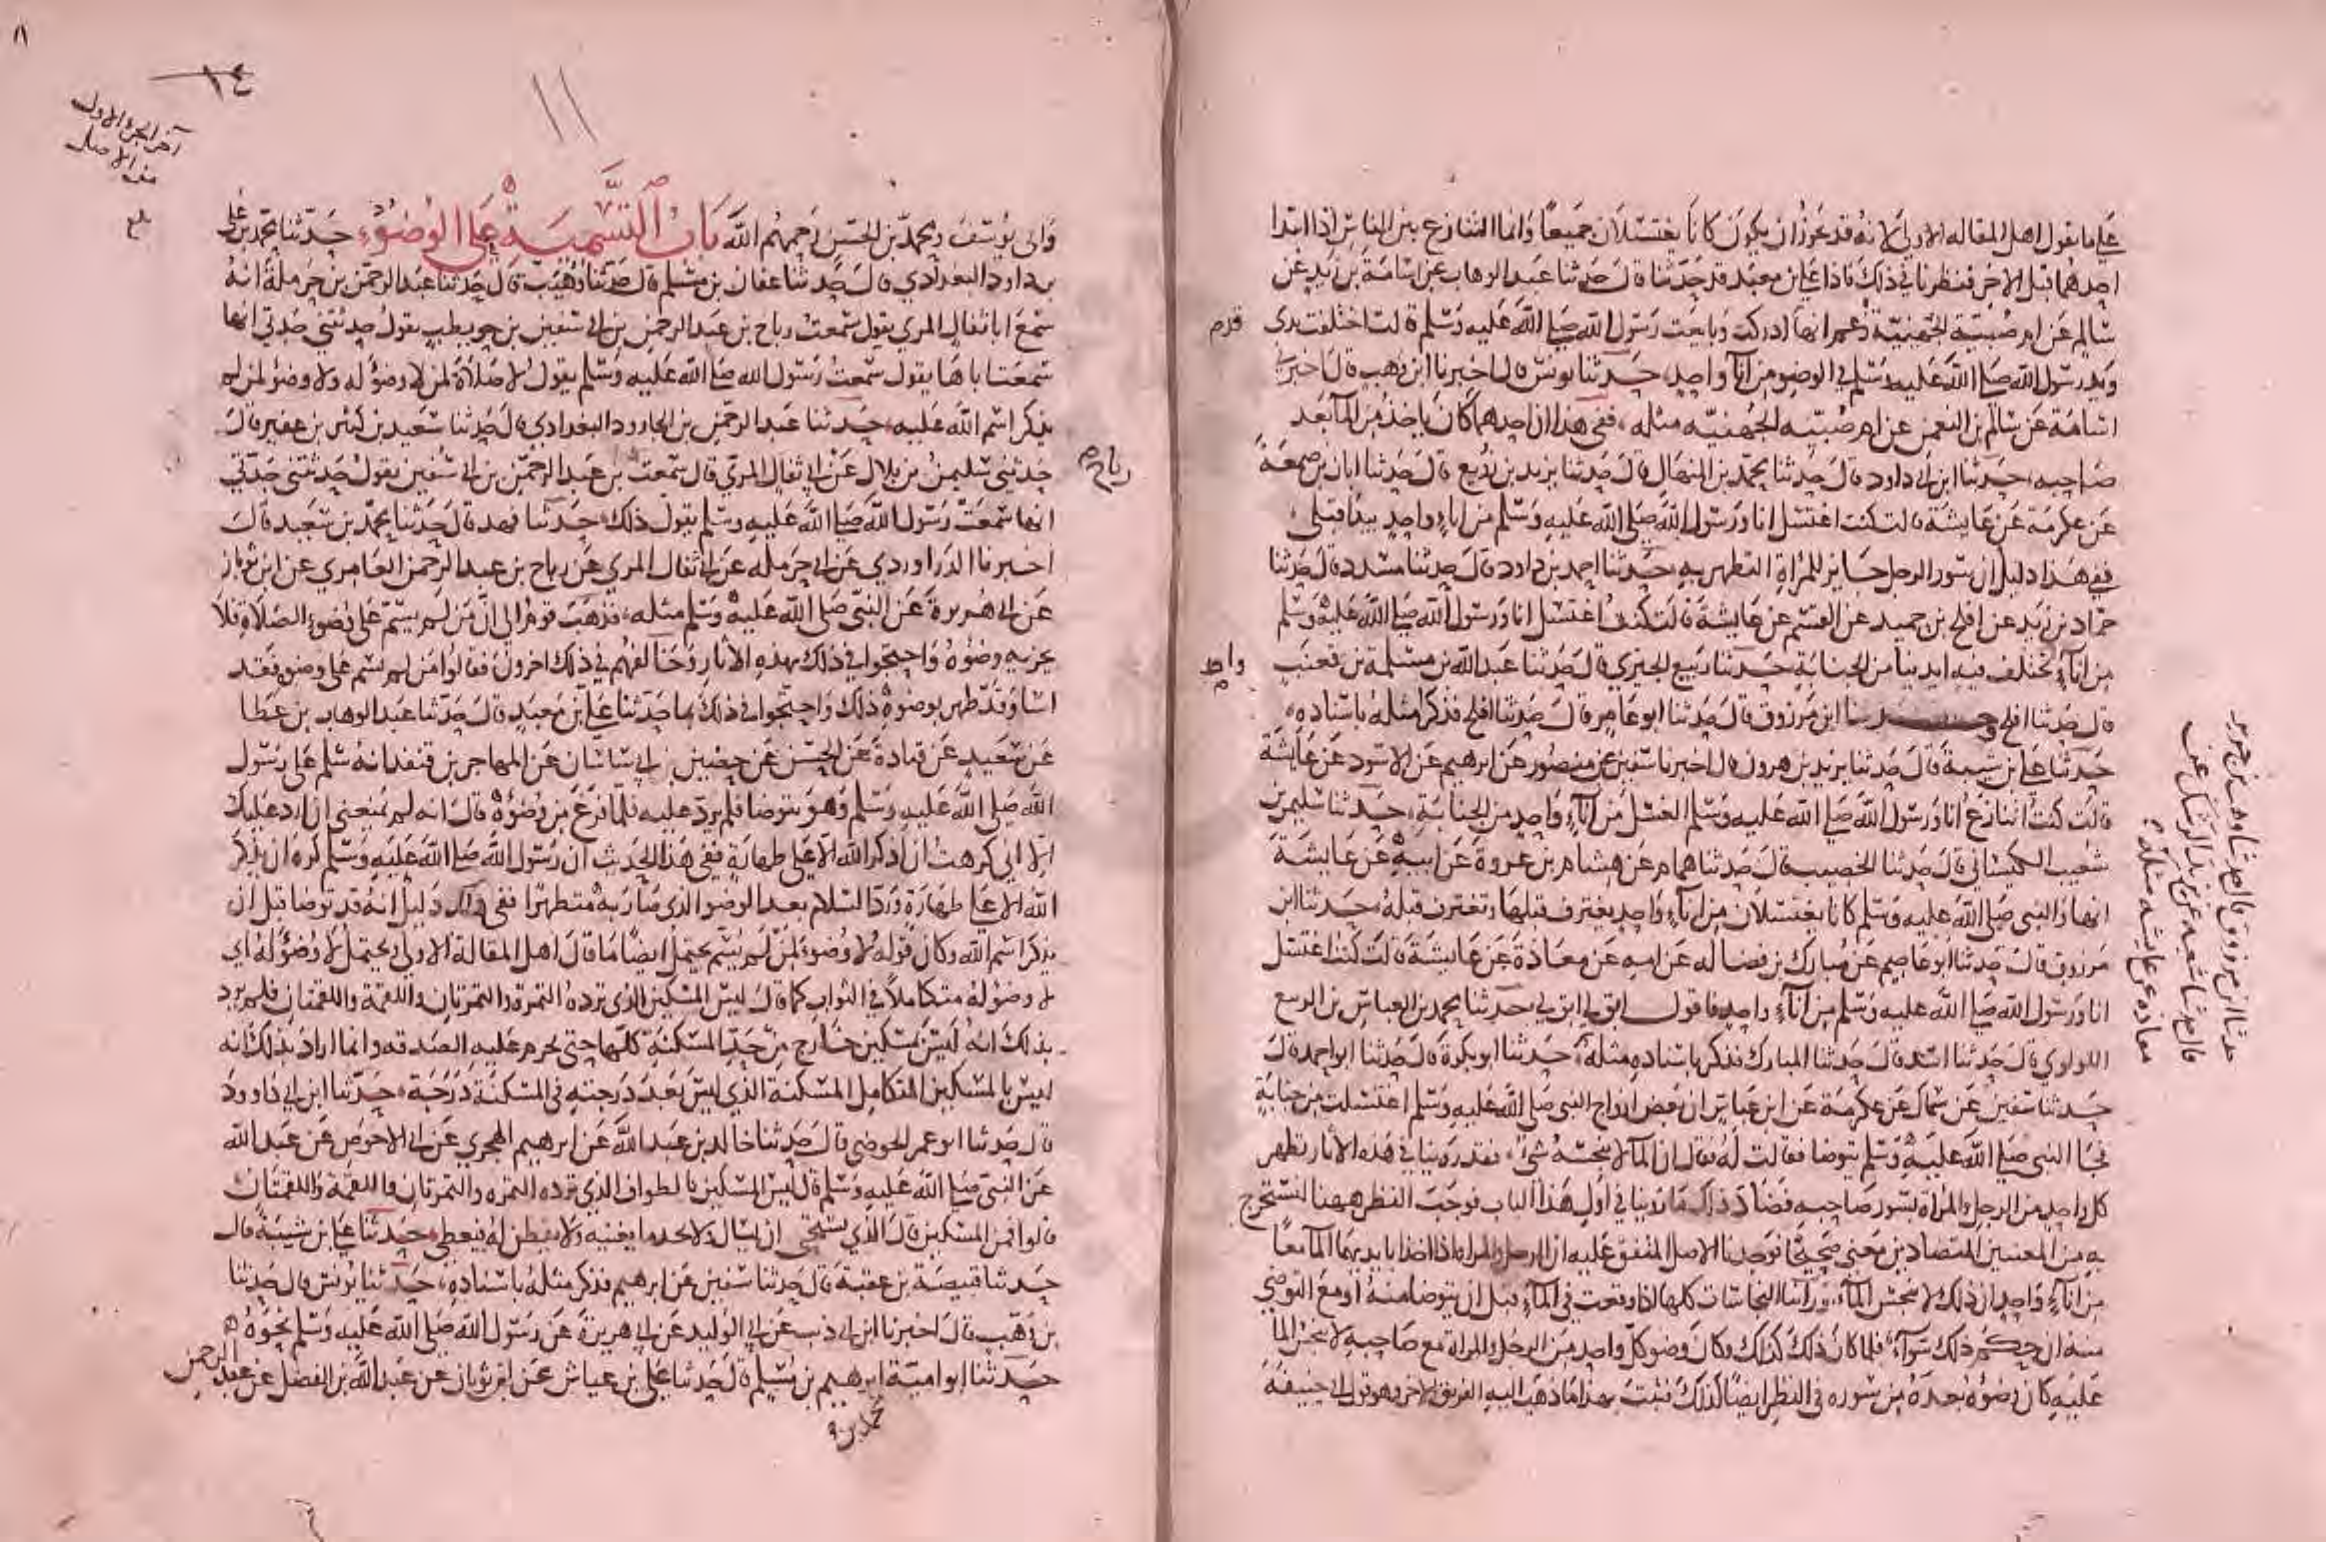 على ما يقول اهل المقاله الاولى الا انه قد يجوز ان يكون كانا يغتسلان جميعًا وانما التنازع بين الناس اذا ابتدا
احدهما قبل الاخر فنظرنا في ذلك فاذا علي بن معبد قد حدثنا قال حدثنا عبد الوهاب عن اسامة بن زيد عن
سالم عن ام صبية الجهنية وزعم انها ادركت وبايعت رسول الله صلى الله عليه وسلم قالت اختلفت يدى
ويد رسول الله صلى الله عليه وسلم في الوضو من اناء واحد حدثنا يونس قال اخبرنا ابن وهب قال اخبرني
اسامة عن سالم بن النعمن عن ام صبيه الجهنيه مثله ففي هذا ان احدهما كان ياخذ من الماء بعد
صاحبه حدثنا ابن ابي داود قال حدثنا محمد بن المنهال قال حدثنا يزيد بن زريع قال حدثنا ابان بن صمعة
عن عكرمة عن عايشة قالت كنت اغتسل انا ورسول الله صلى الله عليه وسلم من اناء واحد يبدأ قبلي
ففي هذا دليل ان سور الرجل جايز للمراة التطهر به حدثنا احمد بن داود قال حدثنا مسدد قال حدثنا
حماد بن زيد عن افلح بن حميد عن القسم عن عايشة قالت كنت اغتسل انا ورسول الله صلى الله عليه وسلم
من اناء تختلف فيه ايدينا من الجنابة حدثنا ربيع الجيزي قال حدثنا عبد الله بن مسلمة بن قعنب
قال حدثنا افلح وحدثنا ابن مرزوق قال حدثنا ابو عامر قال حدثنا افلح فذكر مثله باسناده
حدثنا علي بن شيبة قال حدثنا يزيد بن هرون قال اخبرنا سفين عن منصور عن ابرهيم عن الاسود عن عايشة
قالت كنت اتنازع انا ورسول الله صلى الله عليه وسلم الغسل من اناء واحد من الجنابة حدثنا سليمن بن
شعيب الكيساني قال حدثنا الخصيب قال حدثنا همام عن هشام بن عروة عن ابيه عن عايشة
انها والنبي صلى الله عليه وسلم كانا يغتسلان من اناء واحد يغترف قبلها وتغترف قبله حدثنا ابن
مرزوق قال حدثنا ابو عاصم عن مبارك بن فضاله عن امه عن معاذة عن عايشة قالت كنت اغتسل
انا ورسول الله صلى الله عليه وسلم من اناء واحد فاقول ابق لي ابق لي حدثنا محمد بن العباس بن الربيع
اللولوي قال حدثنا اسد قال حدثنا المبارك فذكر باسناده مثله حدثنا ابو بكرة قال حدثنا ابو احمد قال
حدثنا سفين عن سماك عن عكرمة عن ابن عباس ان بعض ازواج النبي صلى الله عليه وسلم اغتسلت من جنابة
فجا النبي صلى الله عليه وسلم يتوضا فقالت له فقال ان الماء لا ينجسه شي فقد روينا في هذه الاثار تطهر
كل واحد من الرجل والمراة بسور صاحبه فضاد ذلك ما روينا في اول هذا الباب فوجب النظر ههنا لنستخرج
به من المعنيين المتضادين معنى صحيحًا فوجدنا الاصل المتفق عليه ان الرجل والمراة اذا اخذا بايديهما الماء معًا
من اناء واحد ان ذلك لا ينجس الماء ورأينا النجاسات كلها اذا وقعت في الماء قبل ان يتوضا منه او مع التوضي
منه ان حكم ذلك سواء فلما كان ذلك كذلك وكان وضو كل واحد من الرجل والمراة مع صاحبه لا ينجس الما
عليه كان وضوه بعده من سوره في النظر ايضًا كذلك فثبت بهذا ما ذهب اليه الفريق الاخر وهو قول ابي حنيفة
واحد
حدثنا ابن مرزوق قال حدثنا وهب بن جرير
قال حدثنا شعبة عن يزيد الرشك عن
معاذه عن عايشه مثله
١٤
آخر الجزء الاول
من الاصل
بلغ
وابي يوسف ومحمد بن الحسن رحمهم الله باب التسمية على الوضوء حدثنا محمد بن علي
بن داود البغدادي قال حدثنا عفان بن مسلم قال حدثنا وهيب قال حدثنا عبد الرحمن بن حرملة انه
سمع ابا ثفال المري يقول سمعت رباح بن عبد الرحمن بن ابي سفين بن حويطب يقول حدثتني جدتي انها
سمعت اباها يقول سمعت رسول الله صلى الله عليه وسلم يقول لا صلاة لمن لا وضوله ولا وضو لمن لم
يذكر اسم الله عليه حدثنا عبد الرحمن بن الجارود البغدادي قال حدثنا سعيد بن كثير بن عفير قال
حدثني سليمن بن بلال عن ابي ثفال المري قال سمعت بن عبد الرحمن بن ابي سفين يقول حدثتني جدتي
رباح
انها سمعت رسول الله صلى الله عليه وسلم يقول ذلك حدثنا فهد قال حدثنا محمد بن سعيد قال
اخبرنا الدراوردي عن ابن حرملة عن ابي ثفال المري عن رباح بن عبد الرحمن العامري عن ابن ثوبان
عن ابي هريرة عن النبي صلى الله عليه وسلم مثله فذهب قوم الى ان من لم يسم على وضوء الصلاة فلا
يجزيه وضوه واحتجوا في ذلك بهذه الاثار وخالفهم في ذلك اخرون فقالوا من لم يسم على وضوه فقد
اسا وقد طهر بوضوه ذلك واحتجوا في ذلك بما حدثنا علي بن معبد قال حدثنا عبد الوهاب بن عطا
عن سعيد عن قتادة عن الحسن عن حضين بن ابي ساسان عن المهاجر بن قنفذ انه سلم على رسول
الله صلى الله عليه وسلم وهو يتوضا فلم يرد عليه فلما فرغ من وضوه قال انه لم يمنعني ان ارد عليك
الا اني كرهت ان اذكر الله الا على طهارة ففي هذا الحديث ان رسول الله صلى الله عليه وسلم كره ان يذكر
الله الا على طهارة ورد السلام بعد الوضو الذي صار به متطهرا ففي ذلك دليل انه قد توضا قبل ان
يذكر اسم الله وكان قوله لا وضوء لمن لم يسم يحتمل ايضًا ما قال اهل المقالة الاولى ويحتمل لا وضو له اي
لا وضو له متكاملًا في الثواب كما قال ليس المسكين الذي ترده التمرة والتمرتان واللقمة واللقمتان فلم يرد
بذلك انه ليس بمسكين خارج من حد المسكنة كلها حتى يحرم عليه الصدقه وانما اراد بذلك انه
ليس بالمسكين المتكامل المسكنة الذي ليس بعد درجته في المسكنة درجة حدثنا ابن ابي داوود
قال حدثنا ابو عمر الحوضي قال حدثنا خالد بن عبد الله عن ابرهيم الهجري عن ابي الاحوص عن عبد الله
عن النبي صلى الله عليه وسلم قال ليس المسكين بالطواف الذي ترده التمره والتمرتان واللقمة واللقمتان
قالوا فمن المسكين قال الذي يستحي ان يسال ولا يجد ما يغنيه ولا يفطن له فيعطى حدثنا علي بن شيبة قال
حدثنا قبيصة بن عقبة قال حدثنا سفين عن ابرهيم فذكر مثله باسناده حدثنا يونس قال حدثنا
بن وهب قال اخبرنا ابن ابي ذيب عن ابي الوليد عن ابي هريرة عن رسول الله صلى الله عليه وسلم نحوه
حدثنا ابو امية ابرهيم بن مسلم قال حدثنا علي بن عياش عن ابن ثوبان عن عبد الله بن الفضل عن عبد الرحمن